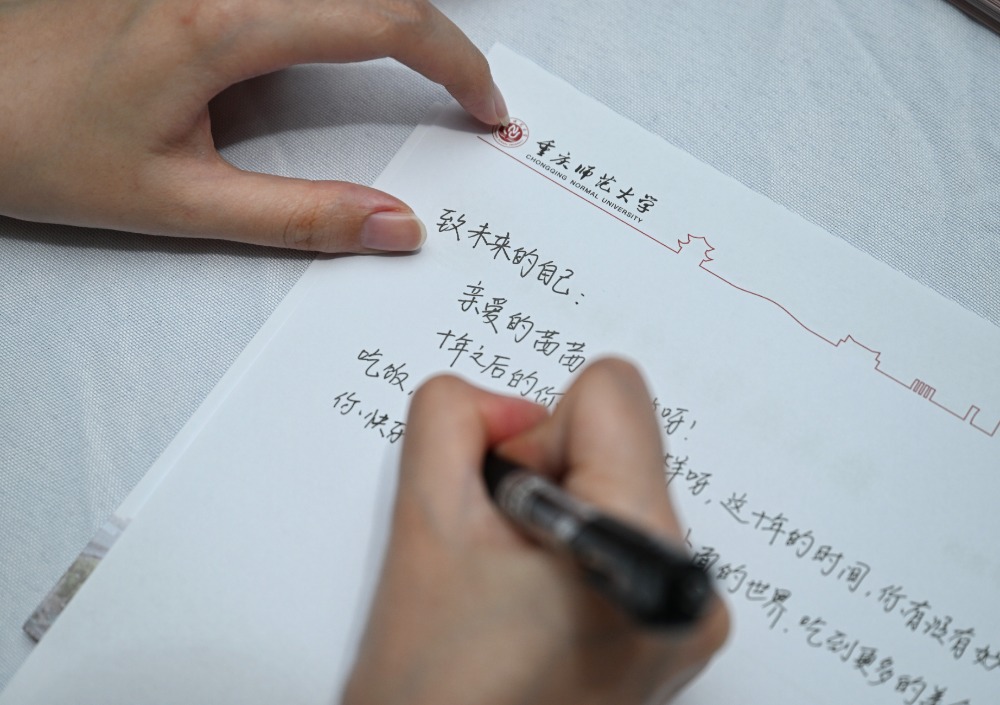 重庆师范大学
CHONGQING NORMAL UNIVERSITY
致未来的自己:
亲爱的茜茜
十年之后的你 呀!
样呀,这十年的时间,你有没有好
吃饭, 面的世界.吃到更多的美
你.快乐